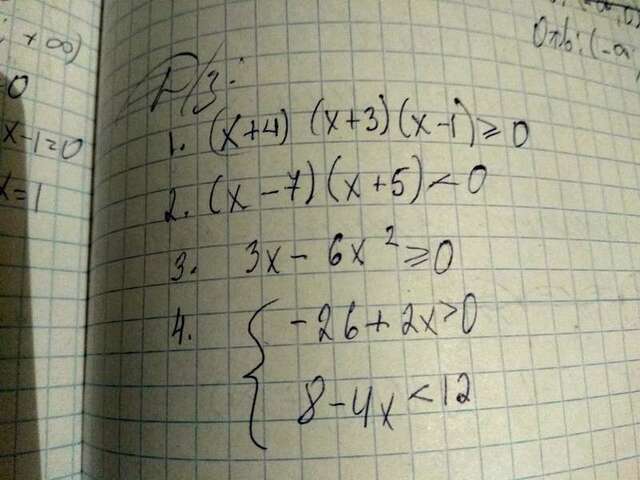 ; +∞)
Отв: (-∞;
=0
x-1=0
x=1
Д/З:
1. (x+4) (x+3)(x-1)≥0
2. (x-7)(x+5)<0
3. 3x-6x²≥0
4. { -26+2x>0
8-4x<12